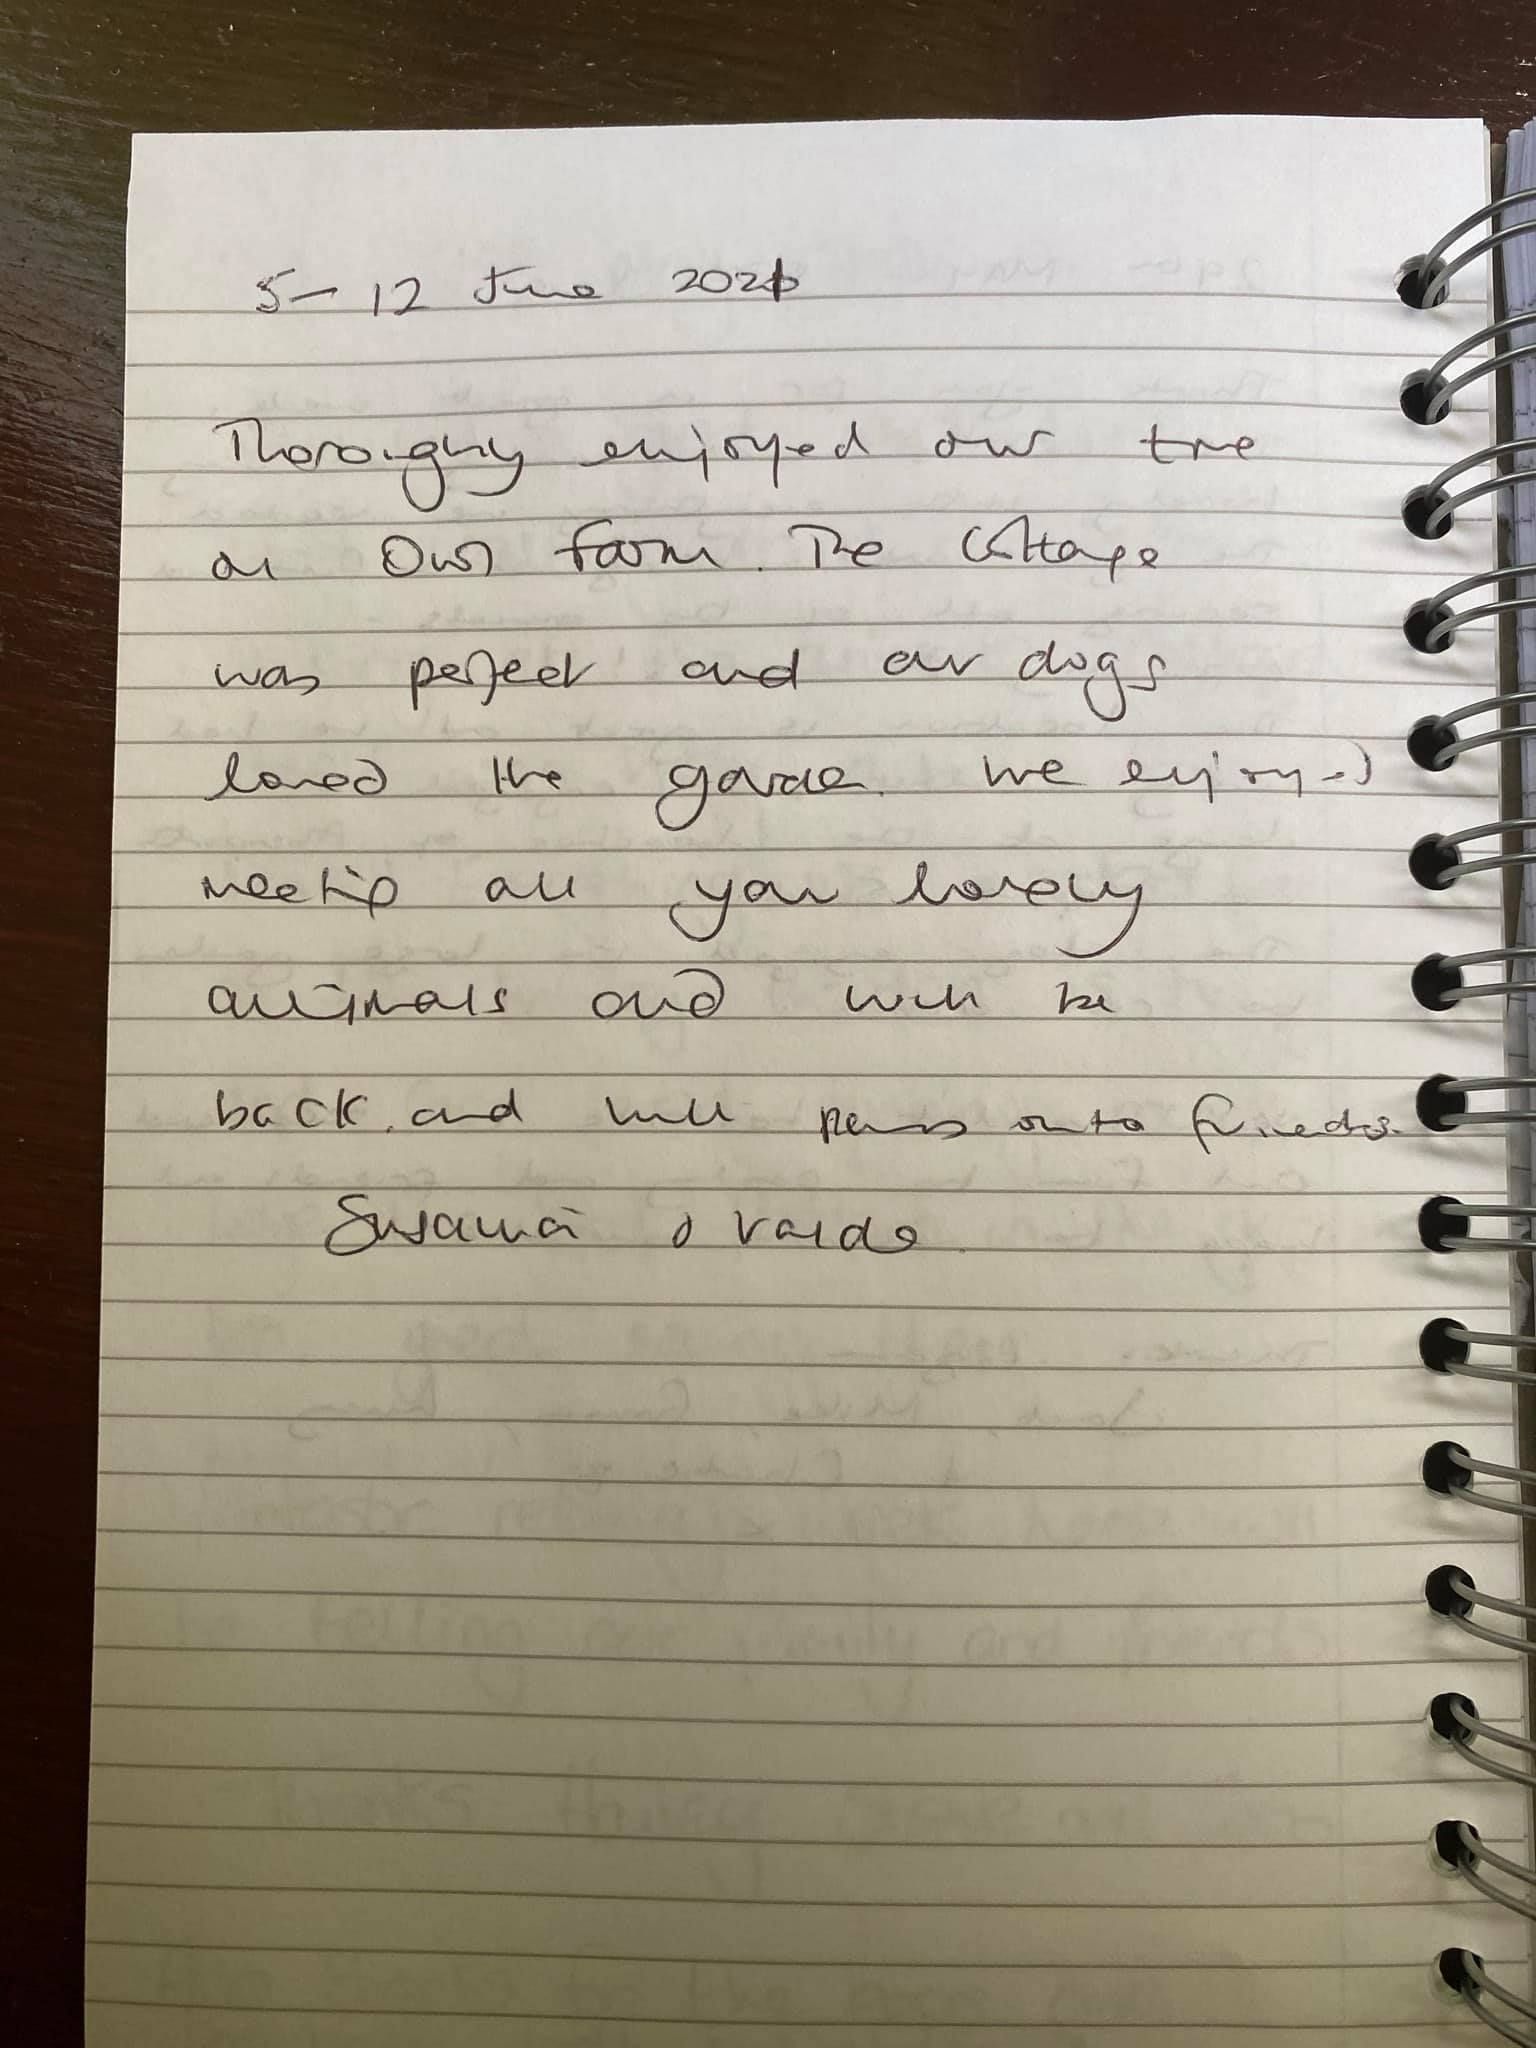 5-12 June 2021
Thoroughly enjoyed our time
on Owl farm. The Cottage
was perfect and our dogs
loved the garden. We enjoyed
meeting all your lovely
animals and will be
back. and will pass onto friends.
Susanna &